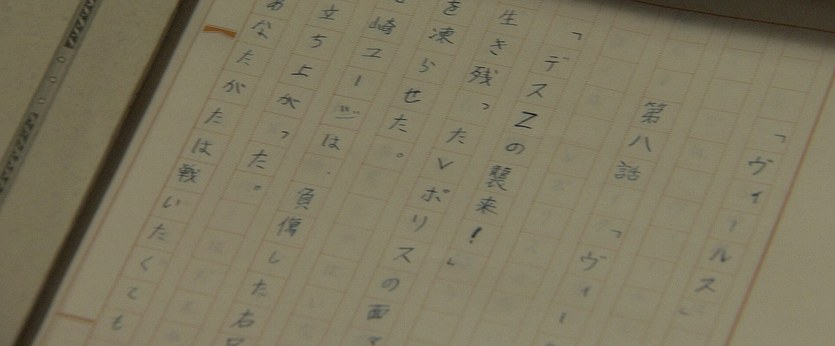 「ヴィールス」
第八話 「ヴィー
「デスZの襲来!」
生き残ったVポリスの面
を凍らせた。
崎ユージは、負傷した右
立ち上がった。
あなたがたは戦いたくても